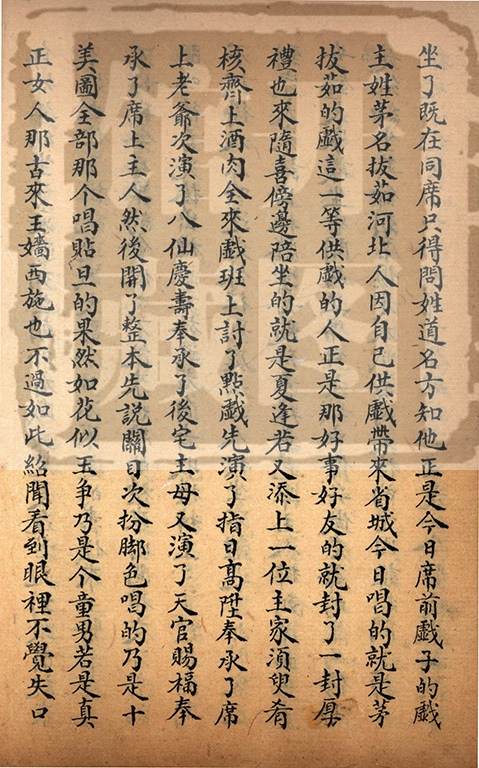 坐了既在同席只得問姓道名方知他正是今日席前戱子的戱
主姓茅名拔茹河北人因自己供戱帶來省城今日唱的就是茅
拔茹的戱這一等供戱的人正是那好事好友的就封了一封厚
禮也來隨喜傍邊陪坐的就是夏逢若又添上一位主家須臾肴
核齊上酒肉全來戱班上討了點戱先演了指日高陞奉承了席
上老爺次演了八仙慶壽奉承了後宅主母又演了天官賜福奉
承了席上主人然後開了整本先說關目次扮脚色唱的乃是十
美圖全部那个唱貼旦的果然如花似玉爭乃是个童男若是真
正女人那古來王嬙西施也不過如此紹聞看到眼裡不覺失口